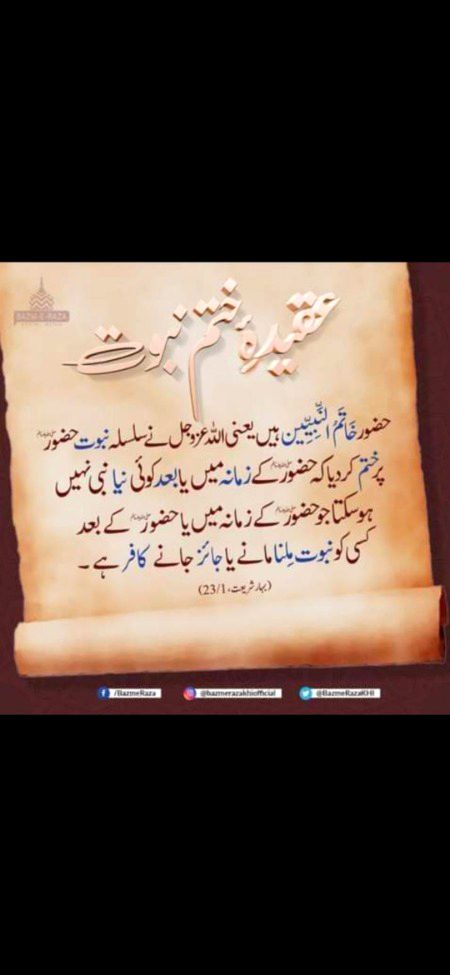 BAZM-E-RAZA
عقیدہٴ ختم نبوت
حضور خَاتَمُ النَّبِیِّین ہیں یعنی اللہ عزوجل نے سلسلہ نبوت حضور ﷺ
پر ختم کردیا کہ حضور ﷺ کے زمانہ میں یا بعد کوئی نیا نبی نہیں
ہوسکتا جو حضور ﷺ کے زمانہ میں یا حضور ﷺ کے بعد
کسی کو نبوت مِلنا مانے یا جائز جانے کافر ہے ۔
(بہار شریعت، 23/1)
/BazmeRaza @bazmerazakhiofficial @BazmeRazaKHI